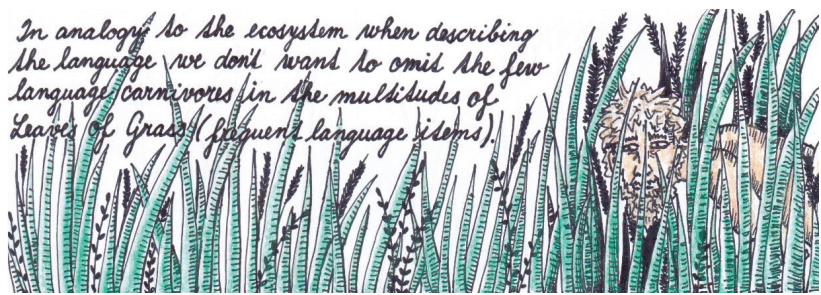 In analogy to the ecosystem when describing
the language we don't want to omit the few
language carnivores in the multitudes of
Leaves of Grass (frequent language items).